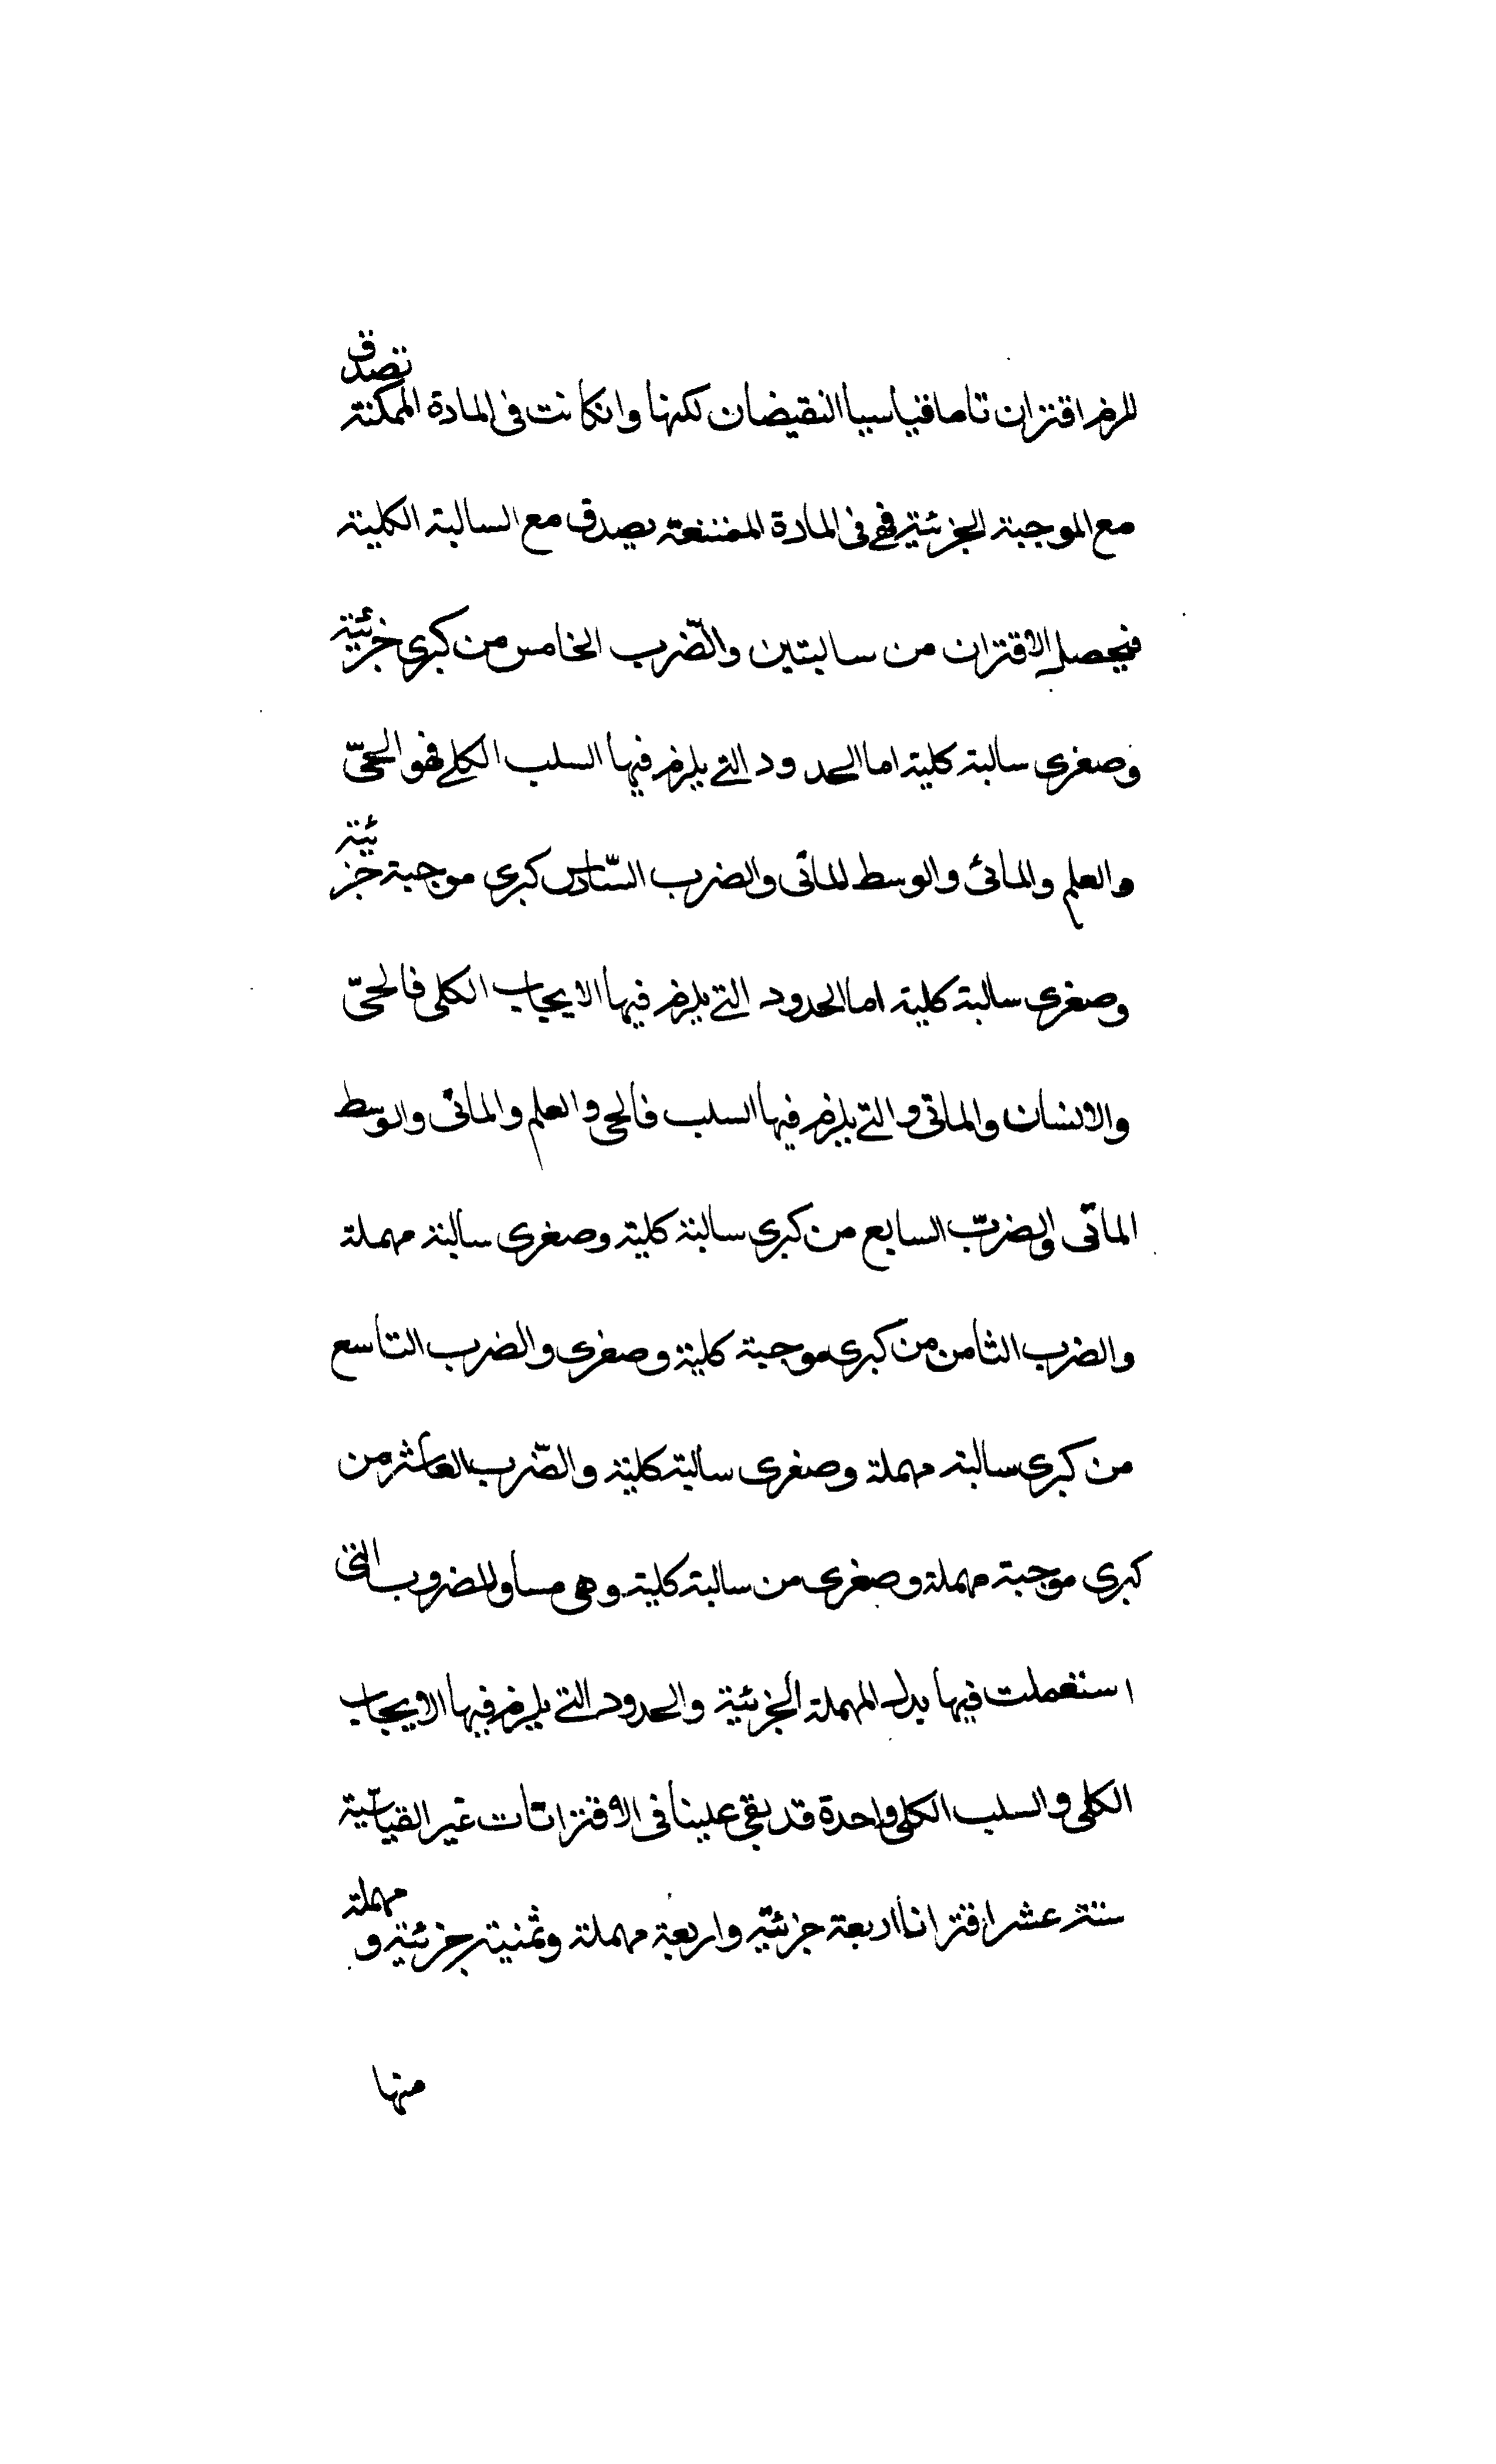 للزم اقتران تاما قياسيا النقيضان لكنها وانكانت فى المادة الممكنة تصدق
مع الموجبة الجزئية فهى فى المادة الممتنعة يصدق مع السالبة الكلية
فيحصل الاقتران من سالبتين والضّرب الخامس من كبرى جزئية
وصغرى سالبة كلية اما الحدود التى يلزم فيها السلب الكلى فهو الحىّ
والعلم والمائى والوسط للمائى والضرب السّادس كبرى موجبة جزئية
وصغرى سالبة كلية اما الحدود التى يلزم فيها الايجاب الكلى فالحىّ
والانسان والمائى والتى يلزم فيها السلب فالحى والعلم والمائى والوسط
المائى والضرب السابع من كبرى سالبة كلية وصغرى سالبة مهملة
والضرب الثامن من كبرى موجبة كلية وصغرى والضرب التاسع
من كبرى سالبة مهملة وصغرى سالبة كلية والضّرب العاشر من
كبرى موجبة مهملة وصغرى من سالبة كلية وهى مساو للضروب التى
استعملت فيها بدل المهملة الجزئية والحدود التى يلزم فيها الايجاب
الكلى والسلب الكلى واحدة قد بقى علينا فى الاقترانات غير القياسّية
ستة عشر اقترانا اربعة جزئية واربعة مهملة وثمنية جزئية و مهملة
منها